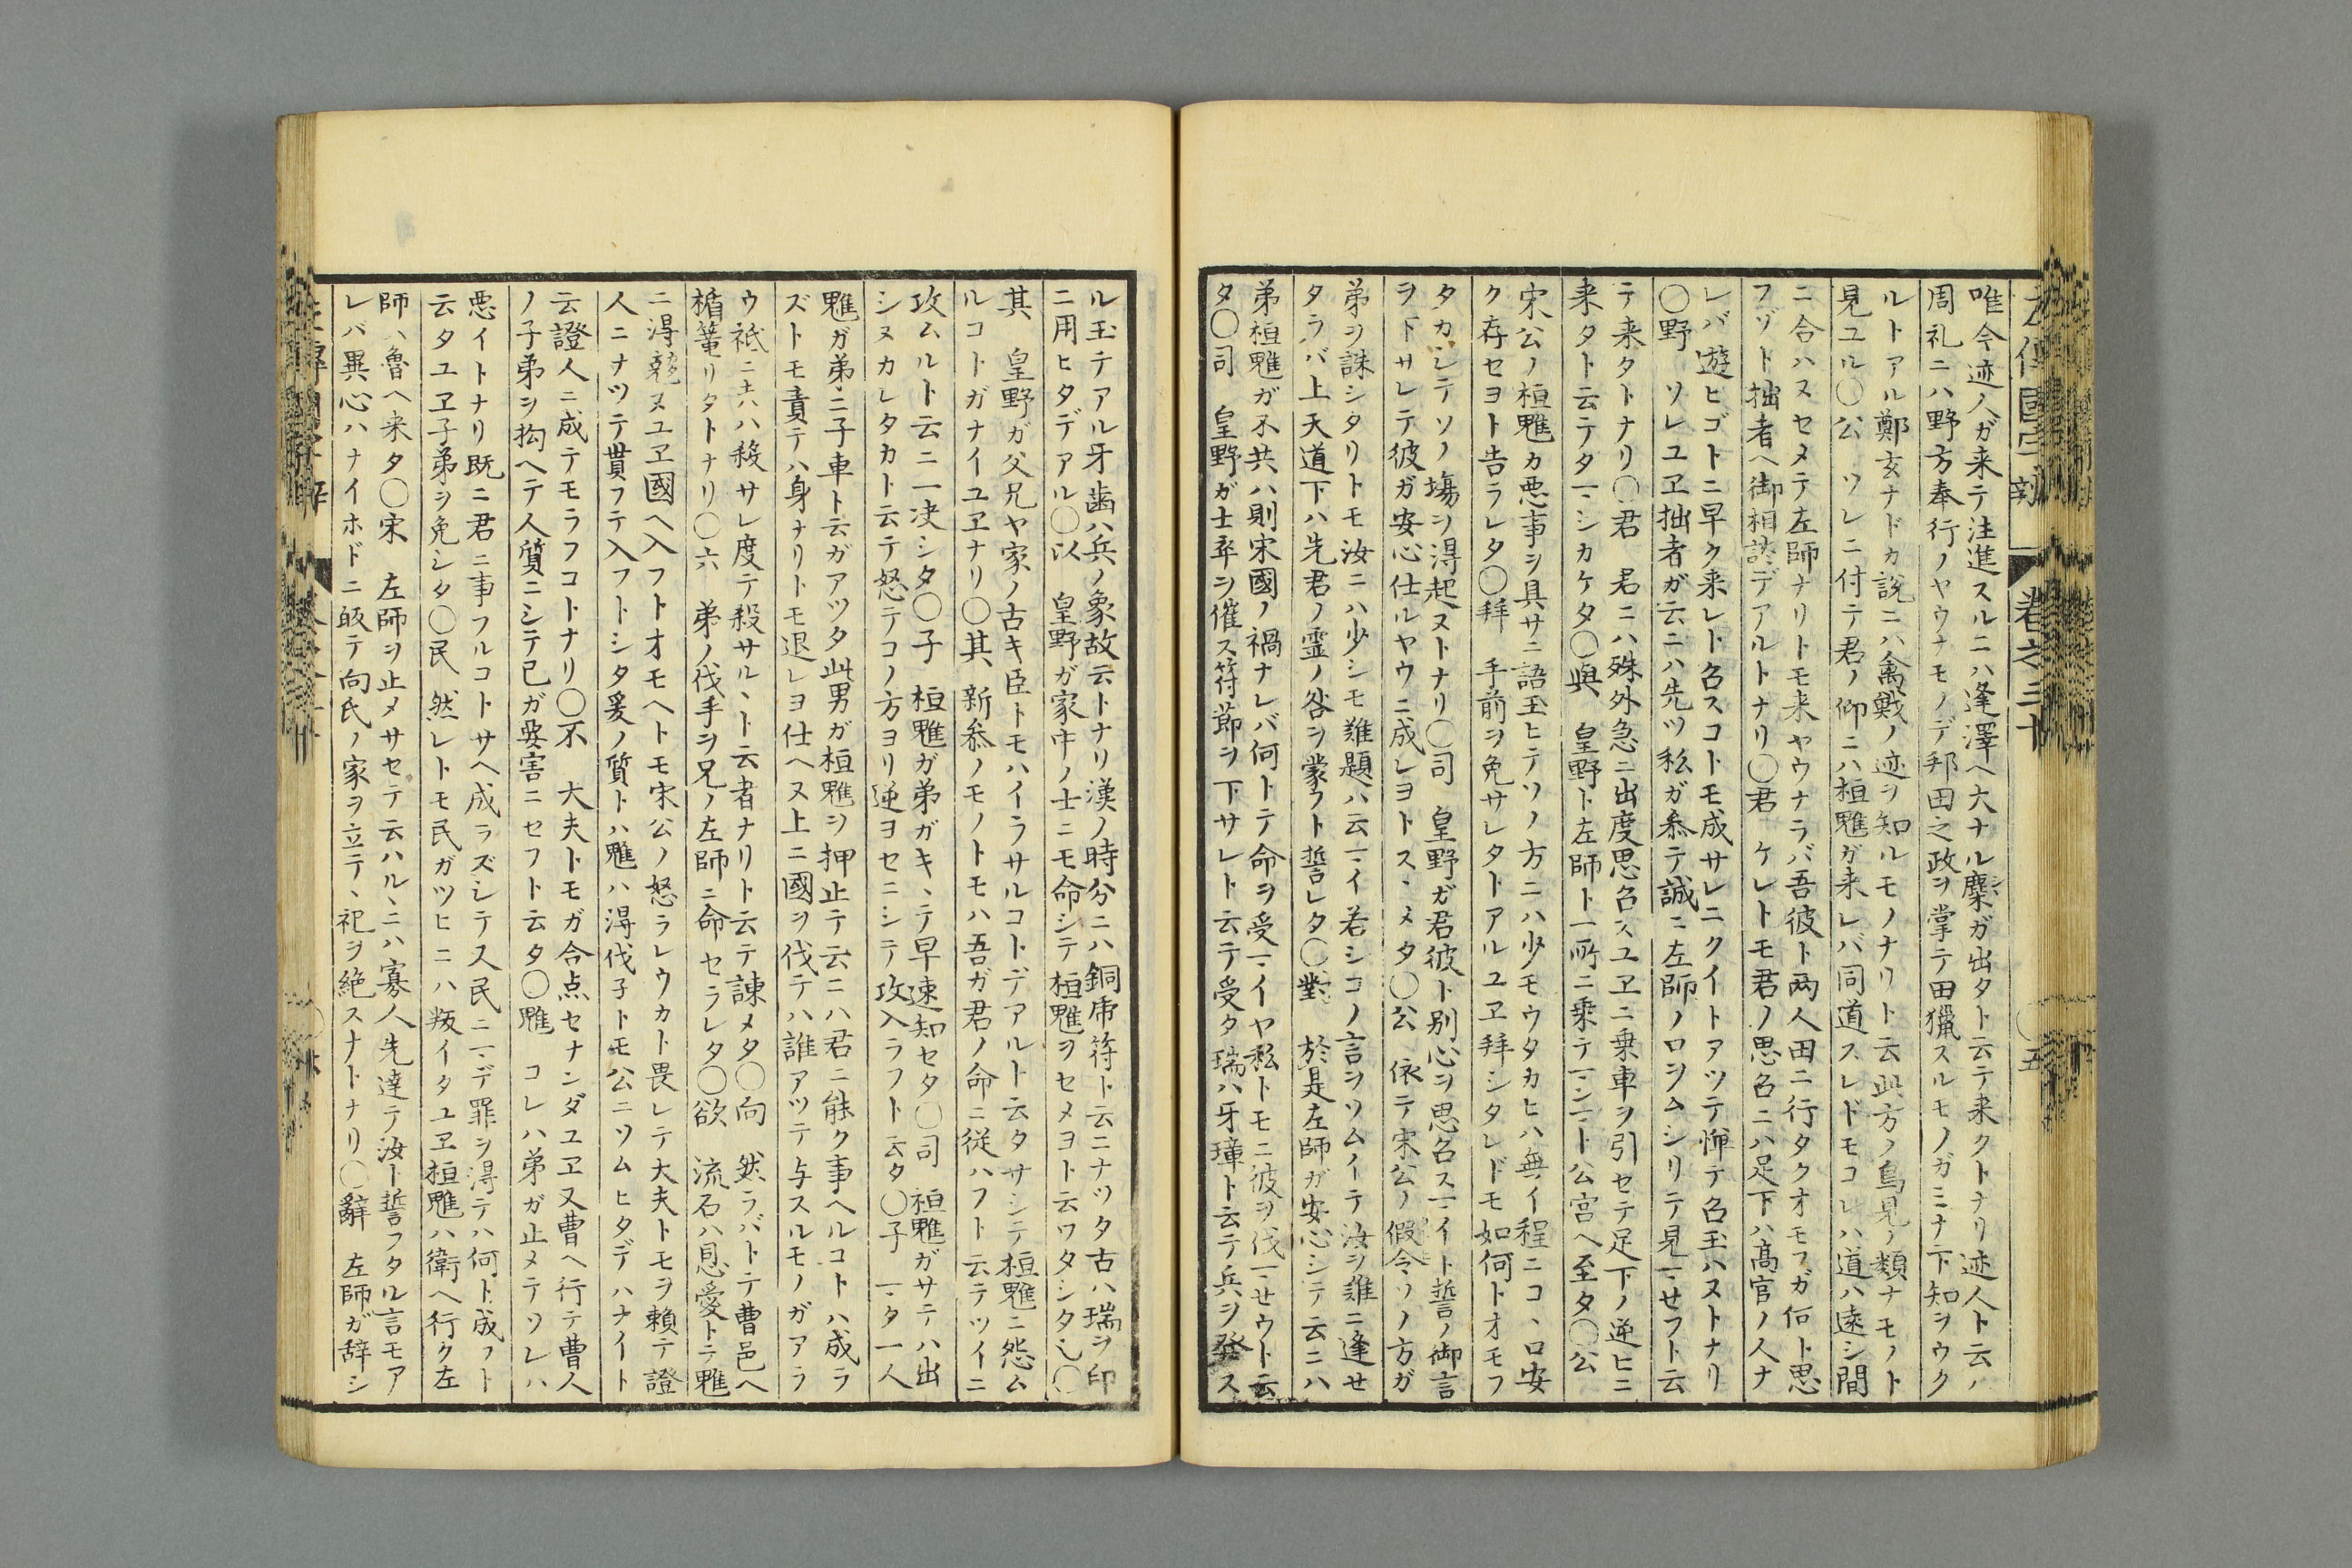 唯今迹人ガ来テ注進スルニハ逢澤ヘ大ナル麋ガ出タト云テ来クトナリ迹人ト云ハ
周礼ニハ野方奉行ノヤウナモノデ邦田之政ヲ掌テ田獵スルモノガミナ下知ヲウク
ルトアル鄭玄ナドカ説ニハ禽獸ノ迹ヲ知ルモノナリト云此方ノ鳥見ノ類ナモノト
見ユル〇公 ソレニ付テ君ノ仰ニハ桓魋ガ来レバ同道スレドモコレハ道ハ遠シ間
ニ合ハヌセメテ左師ナリトモ来ヤウナラバ吾彼ト両人田ニ行タクオモフガ何ト思
フゾト拙者ヘ御相談デアルトナリ〇君 ケレトモ君ノ思召ニハ足下ハ髙官ノ人ナ
レバ遊ヒゴトニ早ク来レト召スコトモ成サレニクイトアツテ憚テ召玉ハヌトナリ
〇野 ソレユヱ拙者ガ云ニハ先ツ私ガ叅テ誠ニ左師ノロヲムシリテ見マせフト云
テ来タトナリ〇君 君ニハ殊外急ニ出度思召スユヱニ乗車ヲ引セテ足下ノ逆ヒニ
来タト云テタマシカケタ〇與 皇野ト左師ト一所ニ乗テマシマト公宮ヘ至タ〇公
宋公ノ桓魋カ悪事ヲ具サニ語玉ヒテソノ方ニハ少モウタカヒハ無イ程ニコヽロ安
ク存セヨト告ラレタ〇拜 手前ヲ免サレタトアルユヱ拜シタレドモ如何トオモフ
タカシテソノ塲ヲ得起ヌトナリ〇司 皇野ガ君彼ト別心ヲ思召スマイト誓ノ御言
ヲ下サレテ彼ガ安心仕ルヤウニ成レヨトスヽメタ〇公 依テ宋公ノ假令ソノ方ガ
弟ヲ誅シタリトモ汝ニハ少シモ難題ハ云マイ若シコノ言ヲソムイテ汝ヲ難ニ逢せ
タラバ上天道下ハ先君ノ霊ノ咎ヲ蒙フト誓レタ〇對 於是左師ガ安心シテ云ニハ
弟桓魋ガ不共ハ則宋國ノ禍ナレバ何トテ命ヲ受マイヤ私トモニ彼ヲ伐マせウト云
タ〇司 皇野ガ士卒ヲ催ス符節ヲ下サレト云テ受タ瑞ハ牙璋ト云テ兵ヲ發ス
ル玉テアル牙歯ハ兵ノ象故云トナリ漢ノ時分ニハ銅席符ト云ニナツタ古ハ瑞ヲ印
ニ用ヒタデアル〇以 皇野ガ家中ノ士ニモ命シテ桓魋ヲセメヨト云ワタシタ也〇
其 皇野ガ父兄ヤ家ノ古キ臣トモハイラサルコトデアルト云タサシテ桓魋ニ怨ム
ルコトガナイユヱナリ〇其 新叅ノモノトモハ吾ガ君ノ命ニ従ハフト云テツイニ
攻ムルト云ニ一决シタ〇子 桓魋ガ弟ガキヽテ早速知セタ〇司 桓魋ガサテハ出
シヌカレタカト云テ怒テコノ方ヨリ逆ヨセニシテ攻入ラフト云タ〇子 マタ一人
魋ガ弟ニ子車ト云ガアツタ此男ガ桓魋ヲ押止テ云ニハ君ニ能ク事ヘルコトハ成ラ
ズトモ責テハ身ナリトモ退レヨ仕ヘヌ上ニ國ヲ伐テハ誰アツテ与スルモノガアラ
ウ祇ニ夫ハ殺サレ度テ殺サルヽト云者ナリト云テ諌メタ〇向 然ラバトテ曹邑ヘ
楯篭リタトナリ〇六 弟ノ伐手ヲ兄ノ左師ニ命セラレタ〇欲 流石ハ恩愛トテ魋
ニ得競ヌユヱ國ヘ入フトオモヘトモ宋公ノ怒ラレウカト畏レテ大夫トモヲ頼テ證
人ニナツテ貫フテ入フトシタ爰ノ質トハ魋ハ得伐子トモ公ニソムヒタデハナイト
云證人ニ成テモラフコトナリ〇不 大夫トモガ合点セナンダユヱ又曹ヘ行テ曹人
ノ子弟ヲ拘ヘテ人質ニシテ己ガ要害ニセフト云タ〇魋 コレハ弟ガ止メテソレハ
悪イトナリ既ニ君ニ事フルコトサヘ成ラズシテ又民ニマデ罪ヲ得テハ何ト成フト
云タユヱ子弟ヲ免シタ〇民 然レトモ民ガツヒニハ叛イタユヱ桓魋ハ衛ヘ行ク左
師ハ魯ヘ来タ〇宋 左師ヲ止メサセテ云ハルヽニハ寡人先達テ汝ト誓フタル言モア
レバ異心ハナイホドニ皈テ向氏ノ家ヲ立テヽ祀ヲ絶スナトナリ〇辭 左師ガ辞シ